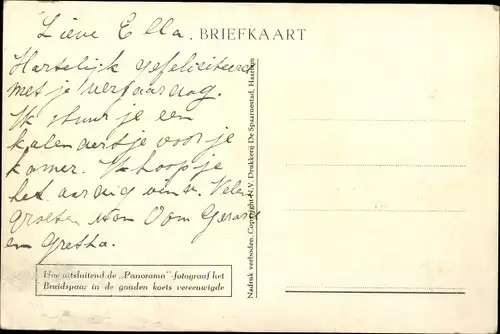 Lieve Ella.
BRIEFKAART
Hartelijk gefeliciteerd
met je verjaardag.
Ik stuur je een
kalendertje voor je
kamer. Ik hoop je
het aardig vindt. Vele
groeten van Oom Gerard
en Gretha.
Hoe uitsluitend de „Panorama"-fotograaf het
Bruidspaar in de gouden koets vereeuwigde
Nadruk verboden. Copyright N.V. Drukkerij De Spaarnestad, Haarlem